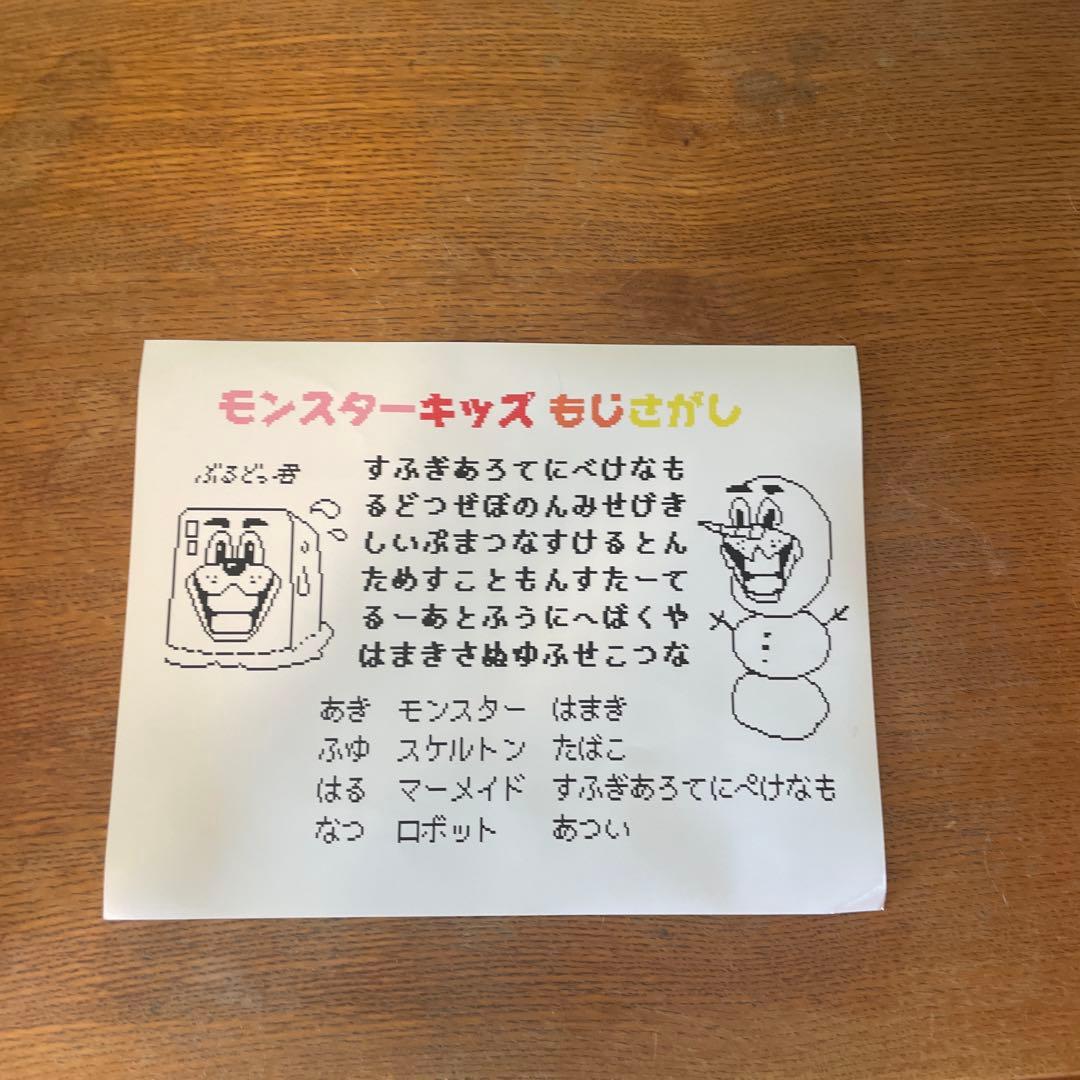 モンスターキッズ もじさがし
ぶるどっ君
すふぎあろてにべけなも
るどつぜぼのんみせげき
しいぷまつなすけるとん
ためすこともんすたーて
るーあとふぅにへばくや
はまきさぬゆふせこつな
あき モンスター はまき
ふゆ スケルトン たばこ
はる マーメイド すふぎあろてにぺけなも
なつ ロボット あつい